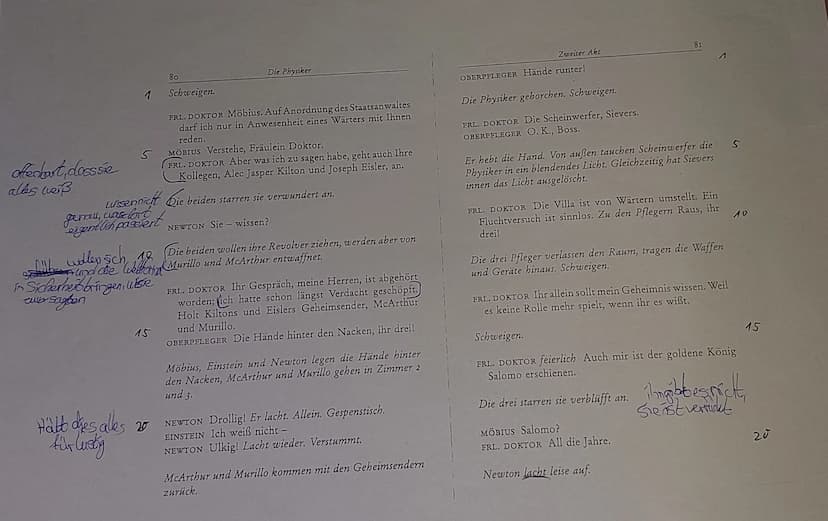 80 Die Physiker
1 Schweigen.
FRL. DOKTOR Möbius. Auf Anordnung des Staatsanwaltes
darf ich nur in Anwesenheit eines Wärters mit Ihnen
reden.
5 MÖBIUS Verstehe, Fräulein Doktor.
FRL. DOKTOR Aber was ich zu sagen habe, geht auch Ihre
Kollegen, Alec Jasper Kilton und Joseph Eisler, an.
offenbart, dass sie
alles weiß
Die beiden starren sie verwundert an.
wissen nicht
genau, was dort
eigentlich passiert
NEWTON Sie – wissen?
Die beiden wollen ihre Revolver ziehen, werden aber von
Murillo und McArthur entwaffnet.
10
wollen sich
und die
in Sicherheit bringen
FRL. DOKTOR Ihr Gespräch, meine Herren, ist abgehört
worden; ich hatte schon längst Verdacht geschöpft.
Holt Kiltons und Eislers Geheimsender, McArthur
und Murillo.
15 OBERPFLEGER Die Hände hinter den Nacken, ihr drei!
Möbius, Einstein und Newton legen die Hände hinter
den Nacken, McArthur und Murillo gehen in Zimmer 2
und 3.
20 NEWTON Drollig! Er lacht. Allein. Gespenstisch.
EINSTEIN Ich weiß nicht –
NEWTON Ulkig! Lacht wieder. Verstummt.
Hält dies alles
für lustig
McArthur und Murillo kommen mit den Geheimsendern
zurück.
Zweiter Akt 81
OBERPFLEGER Hände runter! 1
Die Physiker gehorchen. Schweigen.
FRL. DOKTOR Die Scheinwerfer, Sievers.
OBERPFLEGER O. K., Boss.
Er hebt die Hand. Von außen tauchen Scheinwerfer die 5
Physiker in ein blendendes Licht. Gleichzeitig hat Sievers
innen das Licht ausgelöscht.
FRL. DOKTOR Die Villa ist von Wärtern umstellt. Ein
Fluchtversuch ist sinnlos. Zu den Pflegern Raus, ihr 10
drei!
Die drei Pfleger verlassen den Raum, tragen die Waffen
und Geräte hinaus. Schweigen.
FRL. DOKTOR Ihr allein sollt mein Geheimnis wissen. Weil
es keine Rolle mehr spielt, wenn ihr es wißt.
Schweigen. 15
FRL. DOKTOR feierlich Auch mir ist der goldene König
Salomo erschienen.
Die drei starren sie verblüfft an.
ihn gibt es nicht,
sie ist verrückt
MÖBIUS Salomo?
FRL. DOKTOR All die Jahre. 20
Newton lacht leise auf.